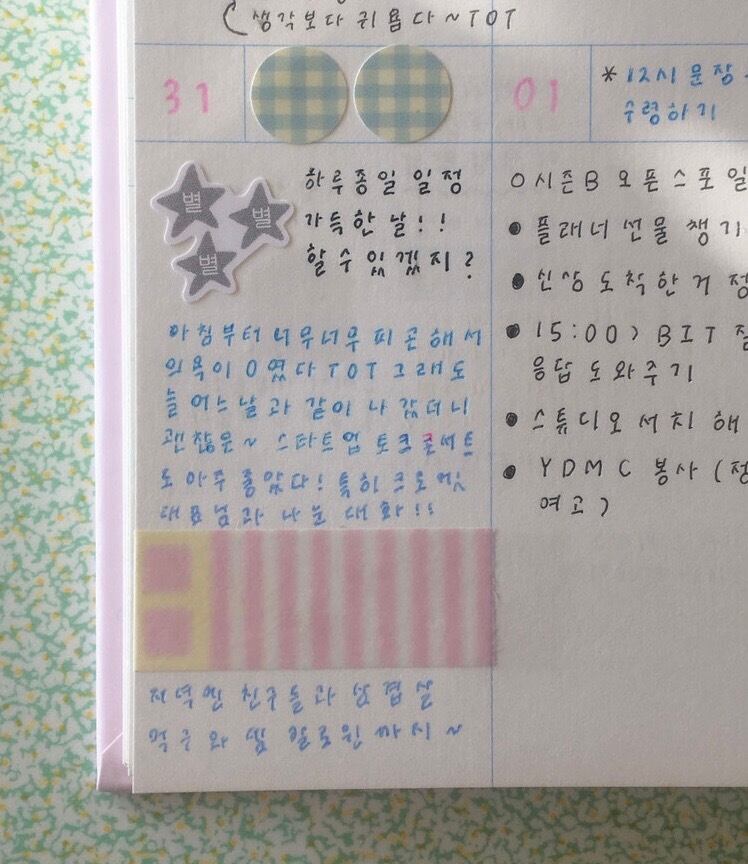 생각보다 귀욤다~TOT
31
01
*12시 문장
수령하기
別
別
別
하루종일 일정
가득한 날!!
할 수 있겠지?
아침부터 너무너무 피곤해서
의욕이 0였다 TOT 그래도
늘 어느날과 같이 나갔더니
괜찮은~ 스타트업 토크콘서트
도 아주 좋았다! 특히 크로켓
대표님과 나눈 대화!!
저녁엔 친구들과 삼겹살
먹구 와
○시즌B 오픈스포일
• 플래너 선물 챙기
• 신상 도착한거 정
• 15:00> BIT 질
응답 도와주기
• 스튜디오 서치 해
• YDMC 봉사 (정
여고)